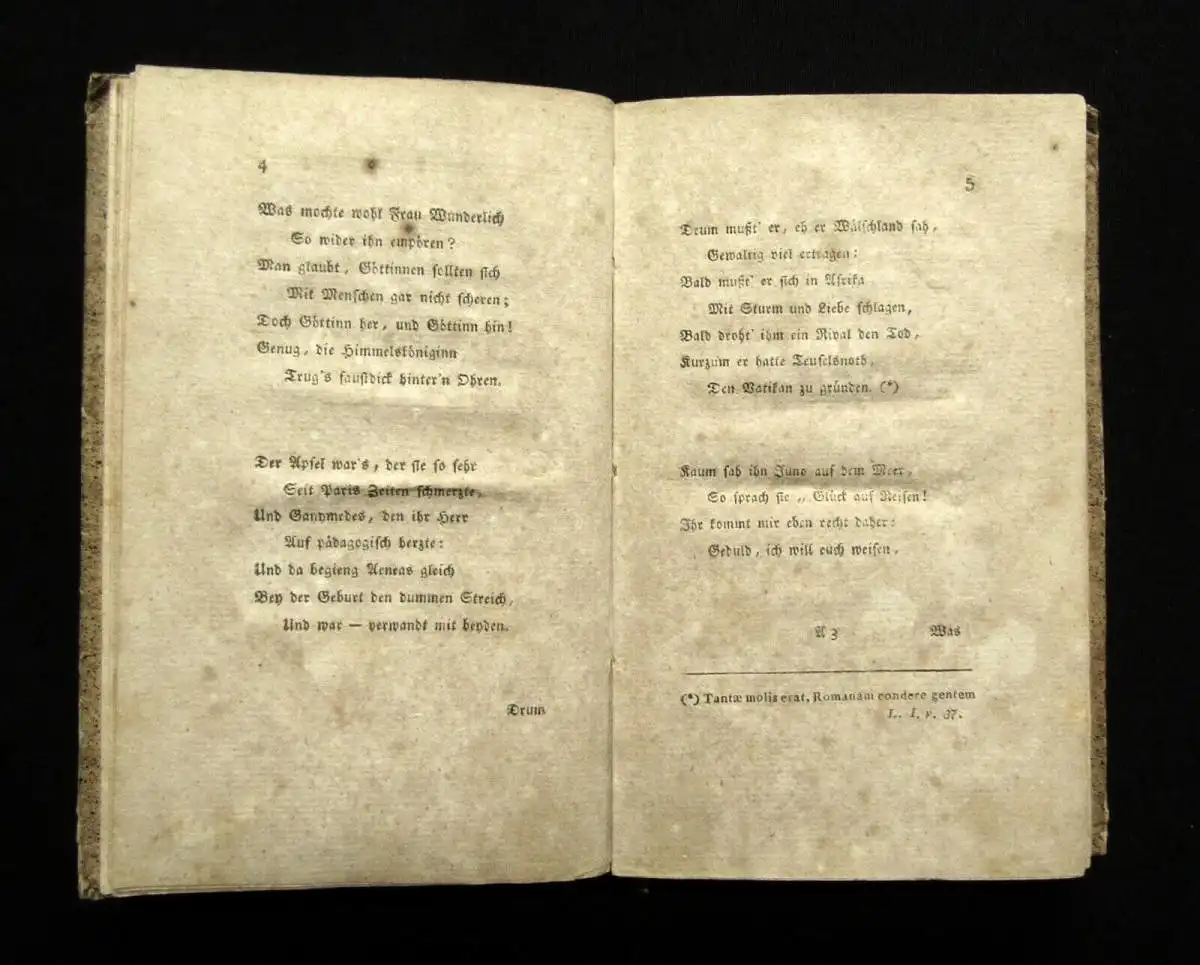 4
Was mochte wohl Frau Wunderlich
So wider ihn empören?
Man glaubt, Göttinnen sollten sich
Mit Menschen gar nicht scheren;
Doch Göttinn her, und Göttinn hin!
Genug, die Himmelsköniginn
Trug's faustdick hinter'n Ohren.
Der Apfel war's, der sie so sehr
Seit Paris Zeiten schmerzte,
Und Ganymedes, den ihr Herr
Auf pädagogisch herzte:
Und da begieng Aeneas gleich
Bey der Geburt den dummen Streich,
Und war — verwandt mit beyden.
Drum
5
Drum mußt' er, eh er Wälschland sah,
Gewaltig viel ertragen:
Bald mußt' er sich in Afrika
Mit Sturm und Liebe schlagen,
Bald droht' ihm ein Rival den Tod,
Kurzum er hatte Teufelsnoth,
Den Vatikan zu gründen. (*)
Kaum sah ihn Juno auf dem Meer,
So sprach sie „Glück auf Reisen!
Ihr kommt mir eben recht daher:
Geduld, ich will euch weisen,
A 3 Was
(*) Tantæ molis erat, Romanam condere gentem
L. I. v. 37.